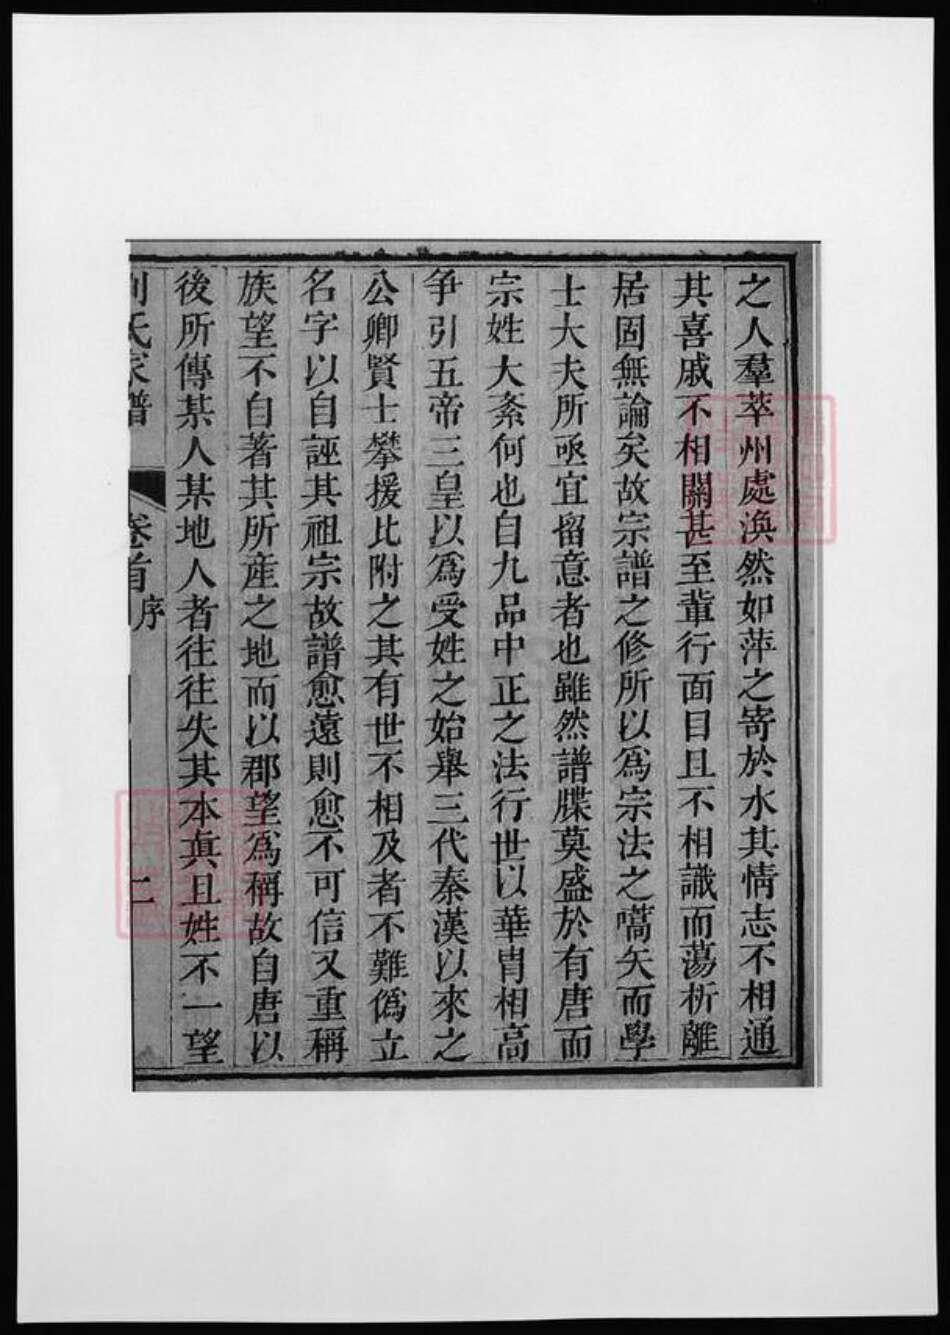 之人羣萃州處渙然如萍之寄於水其情志不相通
其喜戚不相關甚至軰行面目且不相識而蕩析離
居固無論矣故宗譜之修所以爲宗法之嚆矢而學
士大夫所亟宜留意者也雖然譜牒莫盛於有唐而
宗姓大紊何也自九品中正之法行世以華胄相高
争引五帝三皇以爲受姓之始舉三代秦漢以來之
公卿賢士攀援比附之其有世不相及者不難僞立
名字以自誣其祖宗故譜愈遠則愈不可信又重稱
族望不自著其所産之地而以郡望爲稱故自唐以
後所傳某人某地人者往往失其本眞且姓不一望
氏家譜 卷首 序 二